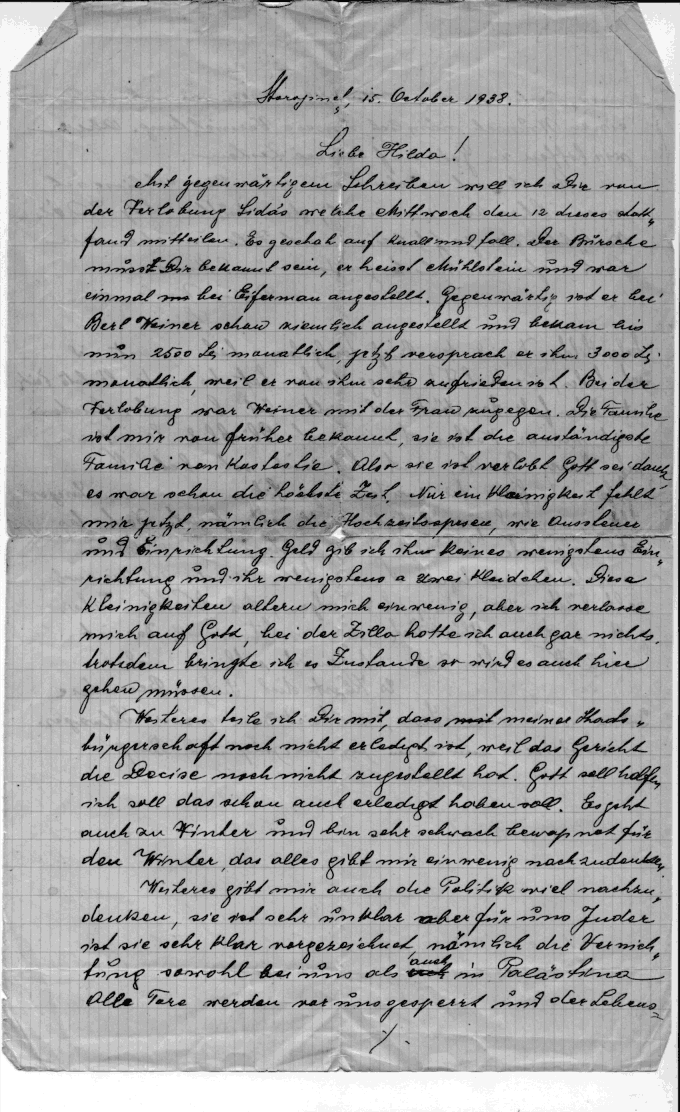 Storojineţ, 15. October 1938.
Liebe Hilda!
Mit gegenwärtigem Schreiben will ich Dir von
der Verlobung Sidas welche Mittwoch den 12 dieses statt„
fand mitteilen. Es geschah auf Knall und fall. Der Bursche
musst Dir bekannt sein, er heisst Mühlstein und war
einmal bei Eiferman angestellt. Gegenwärtig ist er bei
Berl Weiner schon ziemlich angestellt und bekam bis
nun 2500 Lei monatlich, jetzt versprach er ihm 3000 Lei
monatlich, weil er von ihm sehr zufrieden ist. Bei der
Verlobung war Weiner mit der Frau zugegen. Die Familie
ist mir von früher bekannt, sie ist die anständigste
Familie von Kostestie. Also sie ist verlobt Gott sei dank,
es war schon die höchste Zeit. Nur ein kleinigkeit fehlt
mir jetzt, nämlich die Hochzeitsspesen, wie Aussteuer
und Einrichtung. Geld gib ich ihm keines wenigstens Ein„
richtung und ihr wenigstens a zwei kleidchen. Diese
Kleinigkeiten altern mich einwenig, aber ich verlasse
mich auf Gott, bei der Zilla hatte ich auch gar nichts,
trotzdem bringte ich es Zustande so wird es auch hier
gehen müssen.
Weiteres teile ich Dir mit, dass meiner Staats„
bürgerschaft noch nicht erledigt ist, weil das Gericht
die Decise noch nicht zugestellt hat. Gott soll helfen
ich soll das schon auch erledigt haben soll. Es geht
auch zu Winter und bin sehr schwach bewapnet für
den Winter, das alles gibt mir einwenig nachzudenken.
Weiteres gibt mir auch die Politik viel nachzu„
denken, sie ist sehr unklar aber für uns Juden
ist sie sehr klar vorgezeichnet nämlich die Vernich„
tung sowohl bei uns als auch in Palästina
Alle Tore werden vor uns gesperrt und der Lebens„
./.